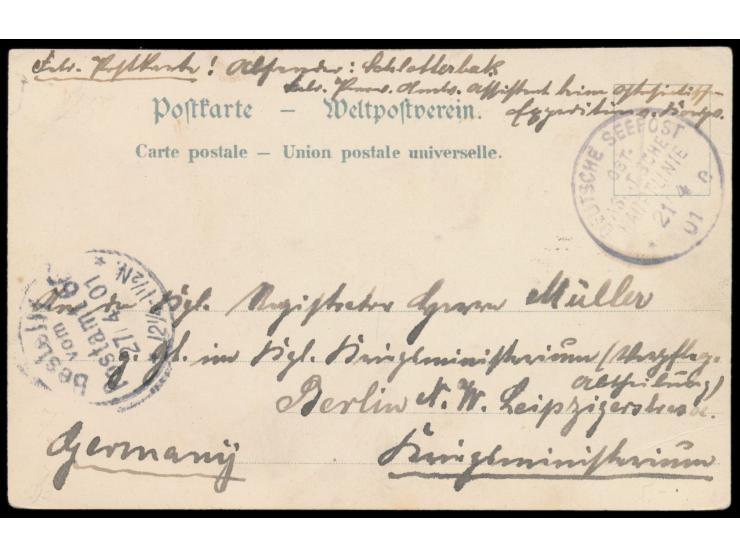 Feld-Postkarte! Absender: Schlotterbek
Prov. Amts. Assistent beim Ostasiatischen
Expeditions-Korps.
Postkarte – Weltpostverein.
Carte postale – Union postale universelle.
DEUTSCHE SEEPOST
OST-
ASIATISCHE
HAUPTLINIE
21 4
01
*
Bestellt
vom
Postamt
27/4 01
1 1/2 N.
*
An den Kgl. Registrator Herrn Müller
z. Zt. im Kgl. Kriegsministerium (Verpfleg.
Abtheilung)
Berlin N.W. Leipzigerstrasse.
Germany Kriegsministerium